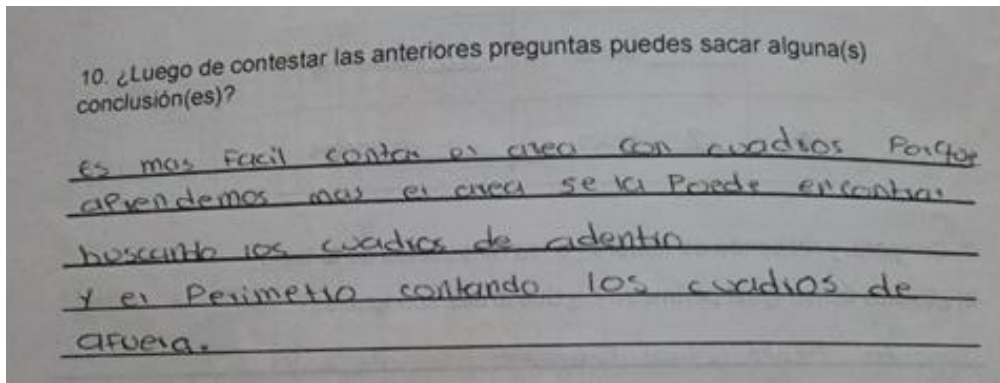 10. ¿Luego de contestar las anteriores preguntas puedes sacar alguna(s)
conclusión(es)?
es mas Facil contar el area con cuadros Porque
aprendemos mas el area se la Poede encontrar
buscando los cuadros de adentro
Y el Perimetro contando los cuadros de
afuera.